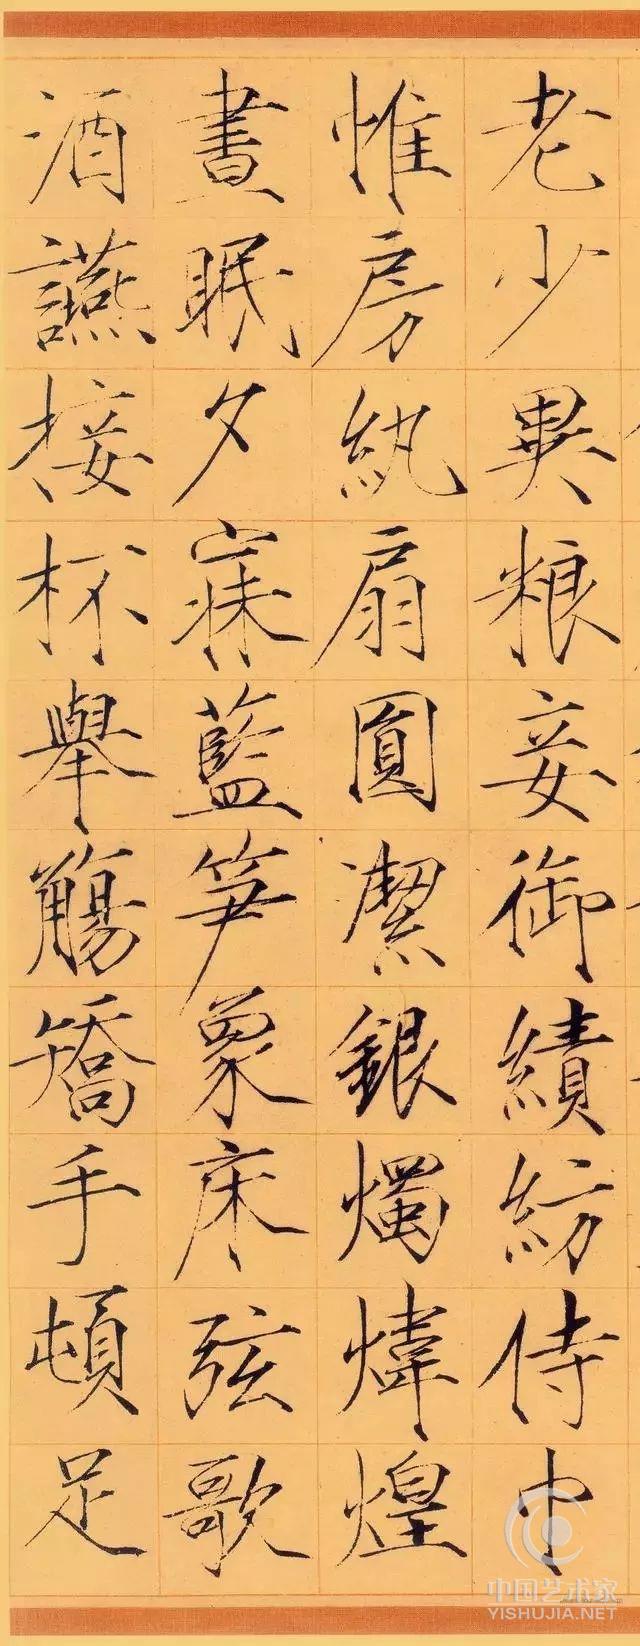 老少異粮妾御績紡侍巾
帷房紈扇圓潔銀燭煒煌
晝眠夕寐藍笋象床弦歌
酒讌接杯舉觴矯手頓足
中国艺术家
YISHUJIA.NET